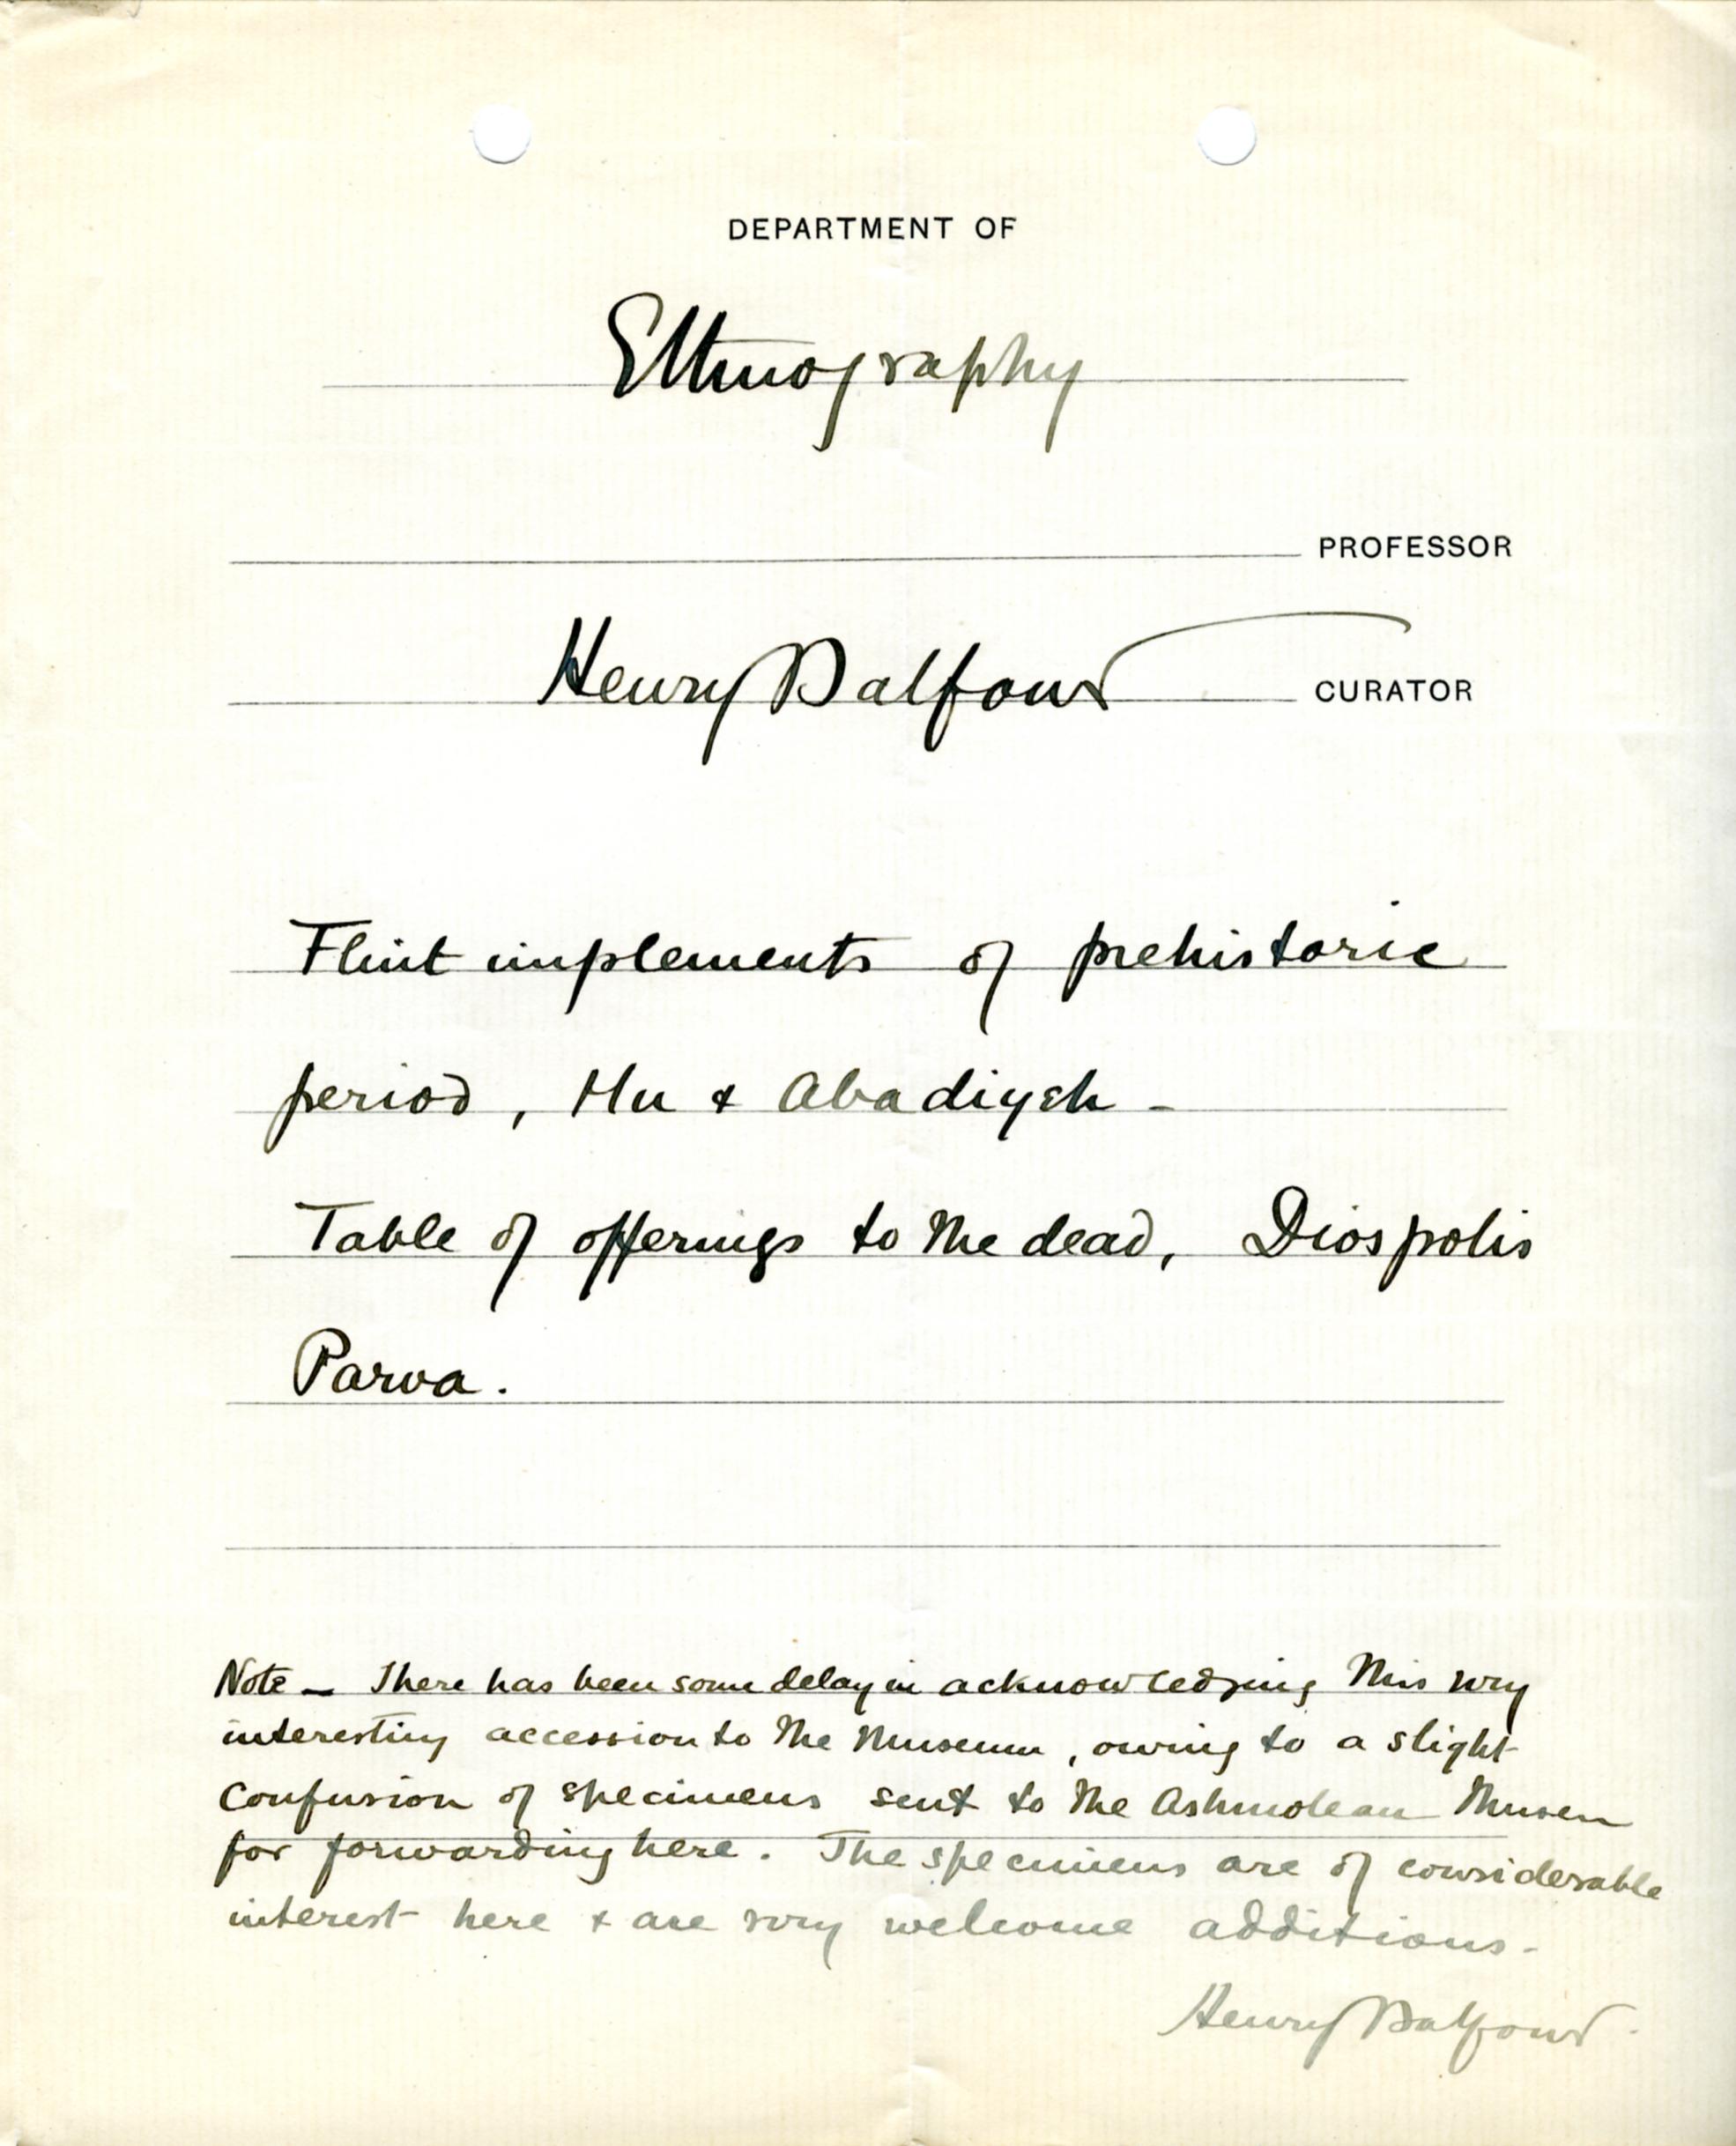 DEPARTMENT OF
Ethnography
PROFESSOR
Henry Balfour CURATOR
Flint implements of prehistoric
period, Hu & Abadiyeh -
Table of offerings to the dead, Diospolis
Parva.
Note - There has been some delay in acknowledging this very
interesting accession to the Museum, owing to a slight
confusion of specimens sent to the Ashmolean Museum
for forwarding here. The specimens are of considerable
interest here & are very welcome additions.
Henry Balfour.